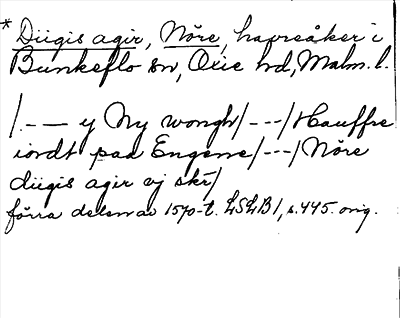 * Diigis agir, Nöre, havreåker i
Bunkeflo sn, Oxie hd, Malm. l.
/.--- y Ny wongh/---/Hauffre
iordt paa Engene/---/Nöre
diigis agir ij skr/
förra delen av 1570-t. LSLB 1, s. 445. orig.